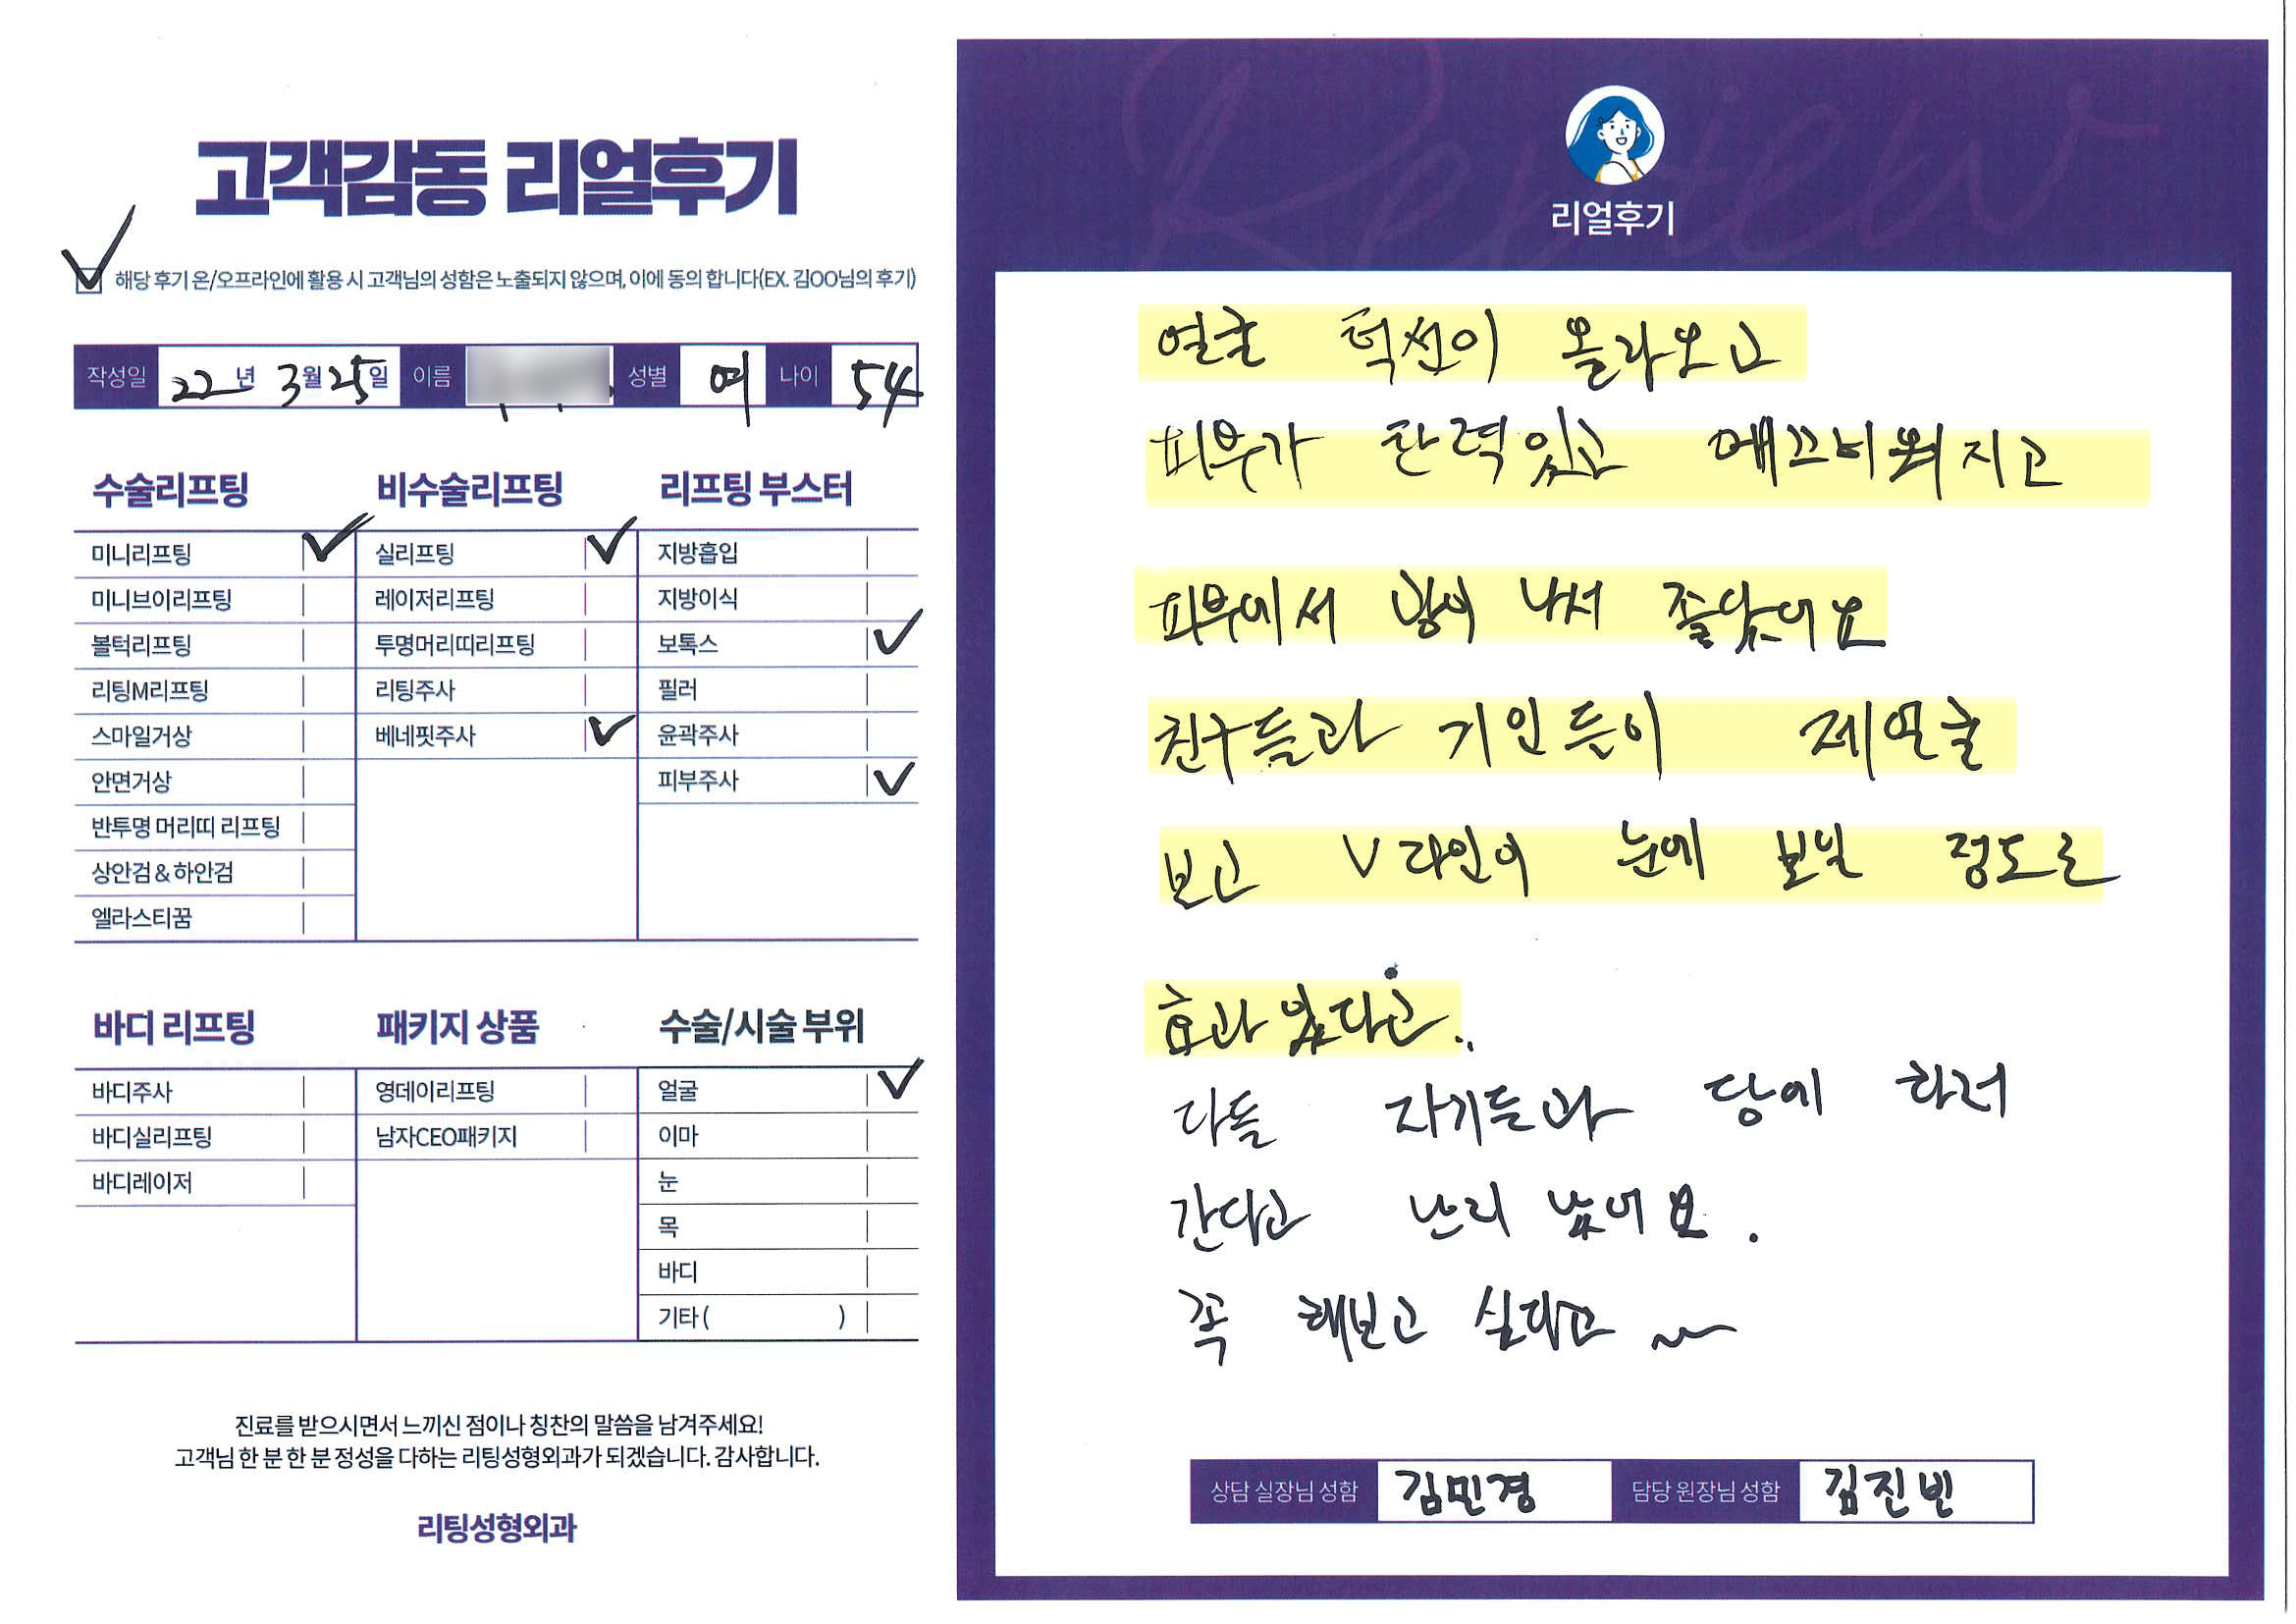 고객감동 리얼후기
해당 후기 온/오프라인에 활용 시 고객님의 성함은 노출되지 않으며, 이에 동의 합니다(EX. 김OO님의 후기)
작성일 22년 3월 25일 이름 성별 여 나이 54
수술리프팅
미니리프팅
미니브이리프팅
볼턱리프팅
리팅M리프팅
스마일거상
안면거상
반투명 머리띠 리프팅
상안검 & 하안검
엘라스티꿈
비수술리프팅
실리프팅
레이저리프팅
투명머리띠리프팅
리팅주사
베네핏주사
리프팅 부스터
지방흡입
지방이식
보톡스
필러
윤곽주사
피부주사
바디 리프팅
바디주사
바디실리프팅
바디레이저
패키지 상품
영데이리프팅
남자CEO패키지
수술/시술 부위
얼굴
이마
눈
목
바디
기타 ( )
진료를 받으시면서 느끼신 점이나 칭찬의 말씀을 남겨주세요!
고객님 한 분 한 분 정성을 다하는 리팅성형외과가 되겠습니다. 감사합니다.
리팅성형외과
Review
리얼후기
얼굴 턱선이 올라오고
피부가 탄력있고 지고
피부에서 광이 나서 좋았어요
친구들과 지인들이 제얼굴
보고 V라인이 눈에 보일 정도로
효과있다고..
다들 자기들과 당에 하러
간다고 난리 났어요.
꼭 해보고 싶다고 ~
상담 실장님 성함 김민경 담당 원장님 성함 김진빈